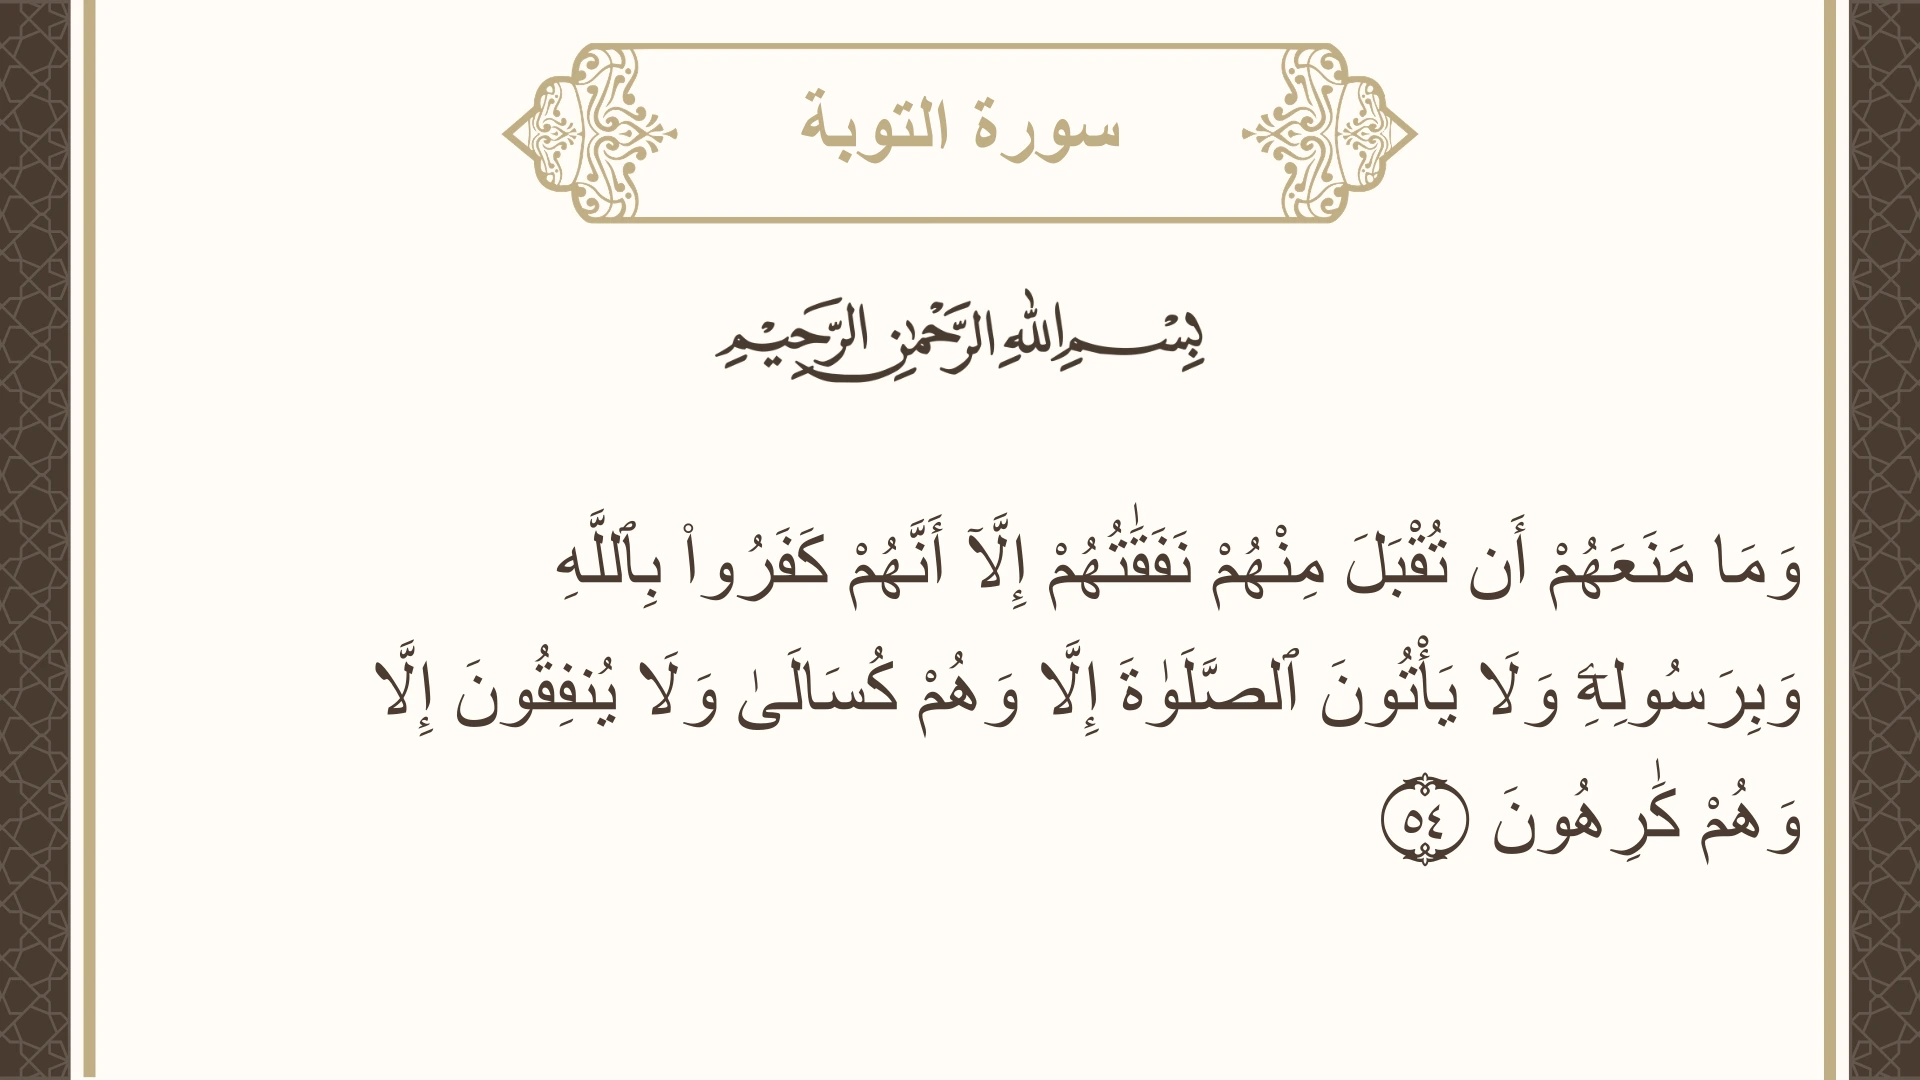 سورة التوبة
بِسْمِ اللهِ الرَّحْمٰنِ الرَّحِيْمِ
وَمَا مَنَعَهُمْ أَن تُقْبَلَ مِنْهُمْ نَفَقَٰتُهُمْ إِلَّآ أَنَّهُمْ كَفَرُوا۟ بِٱللَّهِ
وَبِرَسُولِهِۦ وَلَا يَأْتُونَ ٱلصَّلَوٰةَ إِلَّا وَهُمْ كُسَالَىٰ وَلَا يُنفِقُونَ إِلَّا
وَهُمْ كَٰرِهُونَ ٥٤